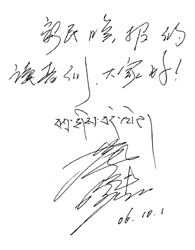 新民晚报的
读者们，大家好！
བཀྲ་ཤིས་བདེ་ལེགས།
06.10.1